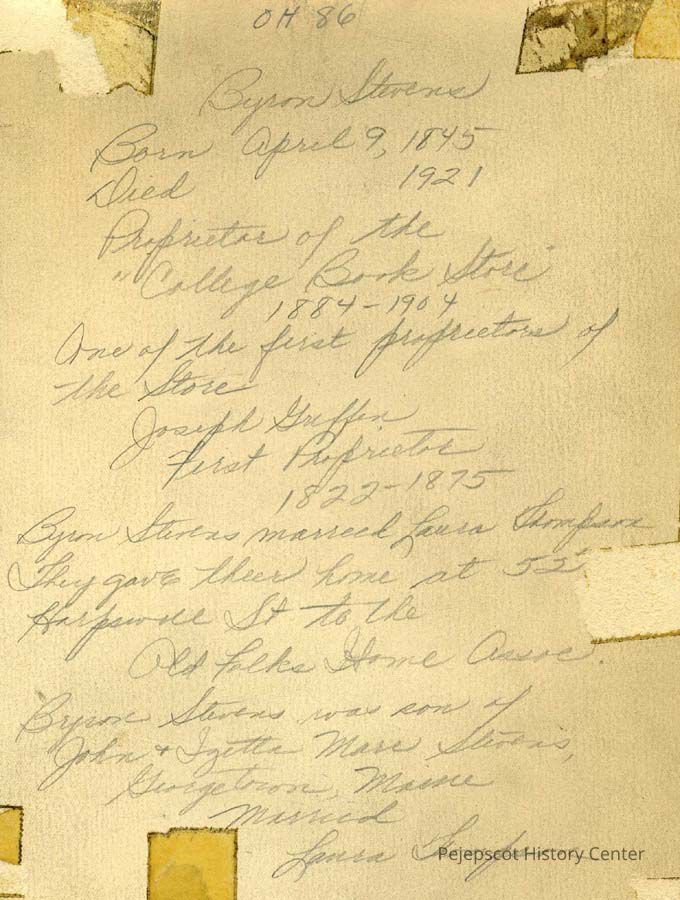 OH 86
Byron Stevens
Born April 9, 1845
Died 1921
Proprietor of the
"College Book Store"
1884-1904
One of the first proprietors of
the Store
Joseph Griffin
First Proprietor
1822-1875
Byron Stevens married Laura Thompson
They gave their home at 52
Harpswell St to the
Old Folks Home Assoc.
Byron Stevens was son of
John + Izetta Stevens,
Georgetown, Maine
Married
Laura
Pejepscot History Center